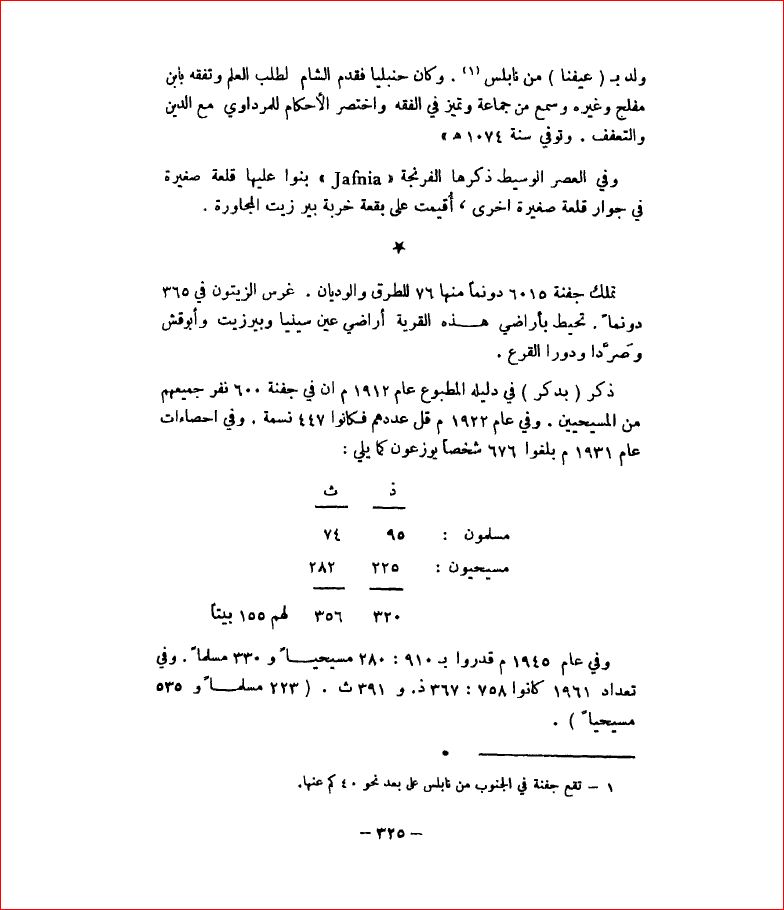 ولد بـ ( عيفنا ) من نابلس (١) . وكان حنبليا فقدم الشام لطلب العلم وتفقه بابن
مفلح وغيره وسمع من جماعة وتميز في الفقه واختصر الأحكام للمرداوي مع الدين
والتعفف . وتوفي سنة ١٠٧٤ هـ »
وفي العصر الوسيط ذكرها الفرنجة « Jafnia » بنوا عليها قلعة صغيرة
في جوار قلعة صغيرة اخرى ، أُقيمت على بقعة خربة بير زيت المجاورة .
★
تملك جفنة ٦٠١٥ دونماً منها ٧٦ للطرق والوديان . غرس الزيتون في ٣٦٥
دونماً . تحيط بأراضي هـــذه القرية أراضي عين سينيا وبيرزيت وأبوقش
وصَرَّدا ودورا القرع .
ذكر ( بدكر ) في دليله المطبوع عام ١٩١٢ م ان في جفنة ٦٠٠ نفر جميعهم
من المسيحيين . وفي عام ١٩٢٢ م قل عددهم فكانوا ٤٤٧ نسمة . وفي احصاءات
عام ١٩٣١ م بلغوا ٦٧٦ شخصاً يوزعون كما يلي :
ذ ث
مسلمون : ٩٥ ٧٤
مسيحيون : ٢٢٥ ٢٨٢
٣٢٠ ٣٥٦ لهم ١٥٥ بيتاً
وفي عام ١٩٤٥ م قدروا بـ ٩١٠ : ٢٨٠ مسيحيـــاً و ٣٣٠ مسلماً . وفي
تعداد ١٩٦١ كانوا ٧٥٨ : ٣٦٧ ذ. و ٣٩١ ث . ( ٢٢٣ مسلمـــاً و ٥٣٥
مسيحياً ) .
١ – تقع جفنة في الجنوب من نابلس على بعد نحو ٤٠ كم عنها.
– ٣٢٥ –